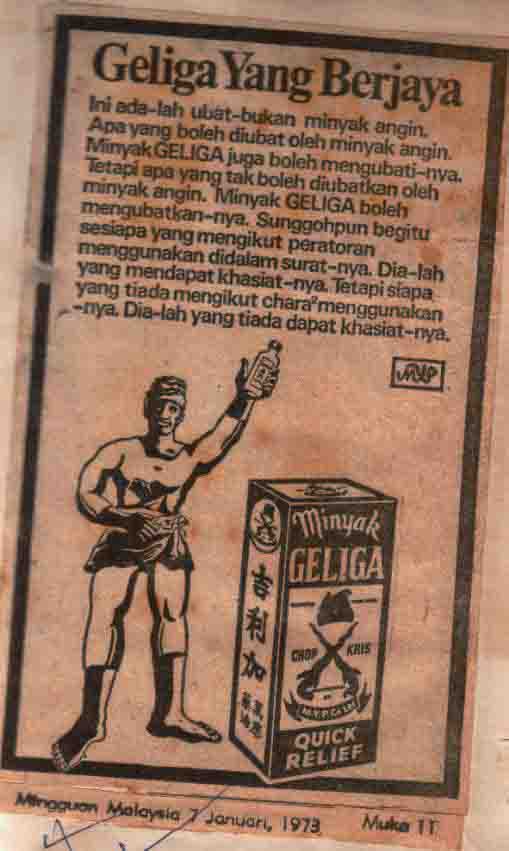 Geliga Yang Berjaya
Ini ada-lah ubat-bukan minyak angin.
Apa yang boleh diubat oleh minyak angin.
Minyak GELIGA juga boleh mengubati-nya.
Tetapi apa yang tak boleh diubatkan oleh
minyak angin. Minyak GELIGA boleh
mengubatkan-nya. Sunggohpun begitu
sesiapa yang mengikut peratoran
menggunakan didalam surat-nya. Dia-lah
yang mendapat khasiat-nya. Tetapi siapa
yang tiada mengikut chara² menggunakan
-nya. Dia-lah yang tiada dapat khasiat-nya.
MYP
Minyak
GELIGA
CHOP KRIS
M.Y.P. Co Ltd
QUICK
RELIEF
吉利加
Mingguan Malaysia 7 Januari, 1973 Muka 11